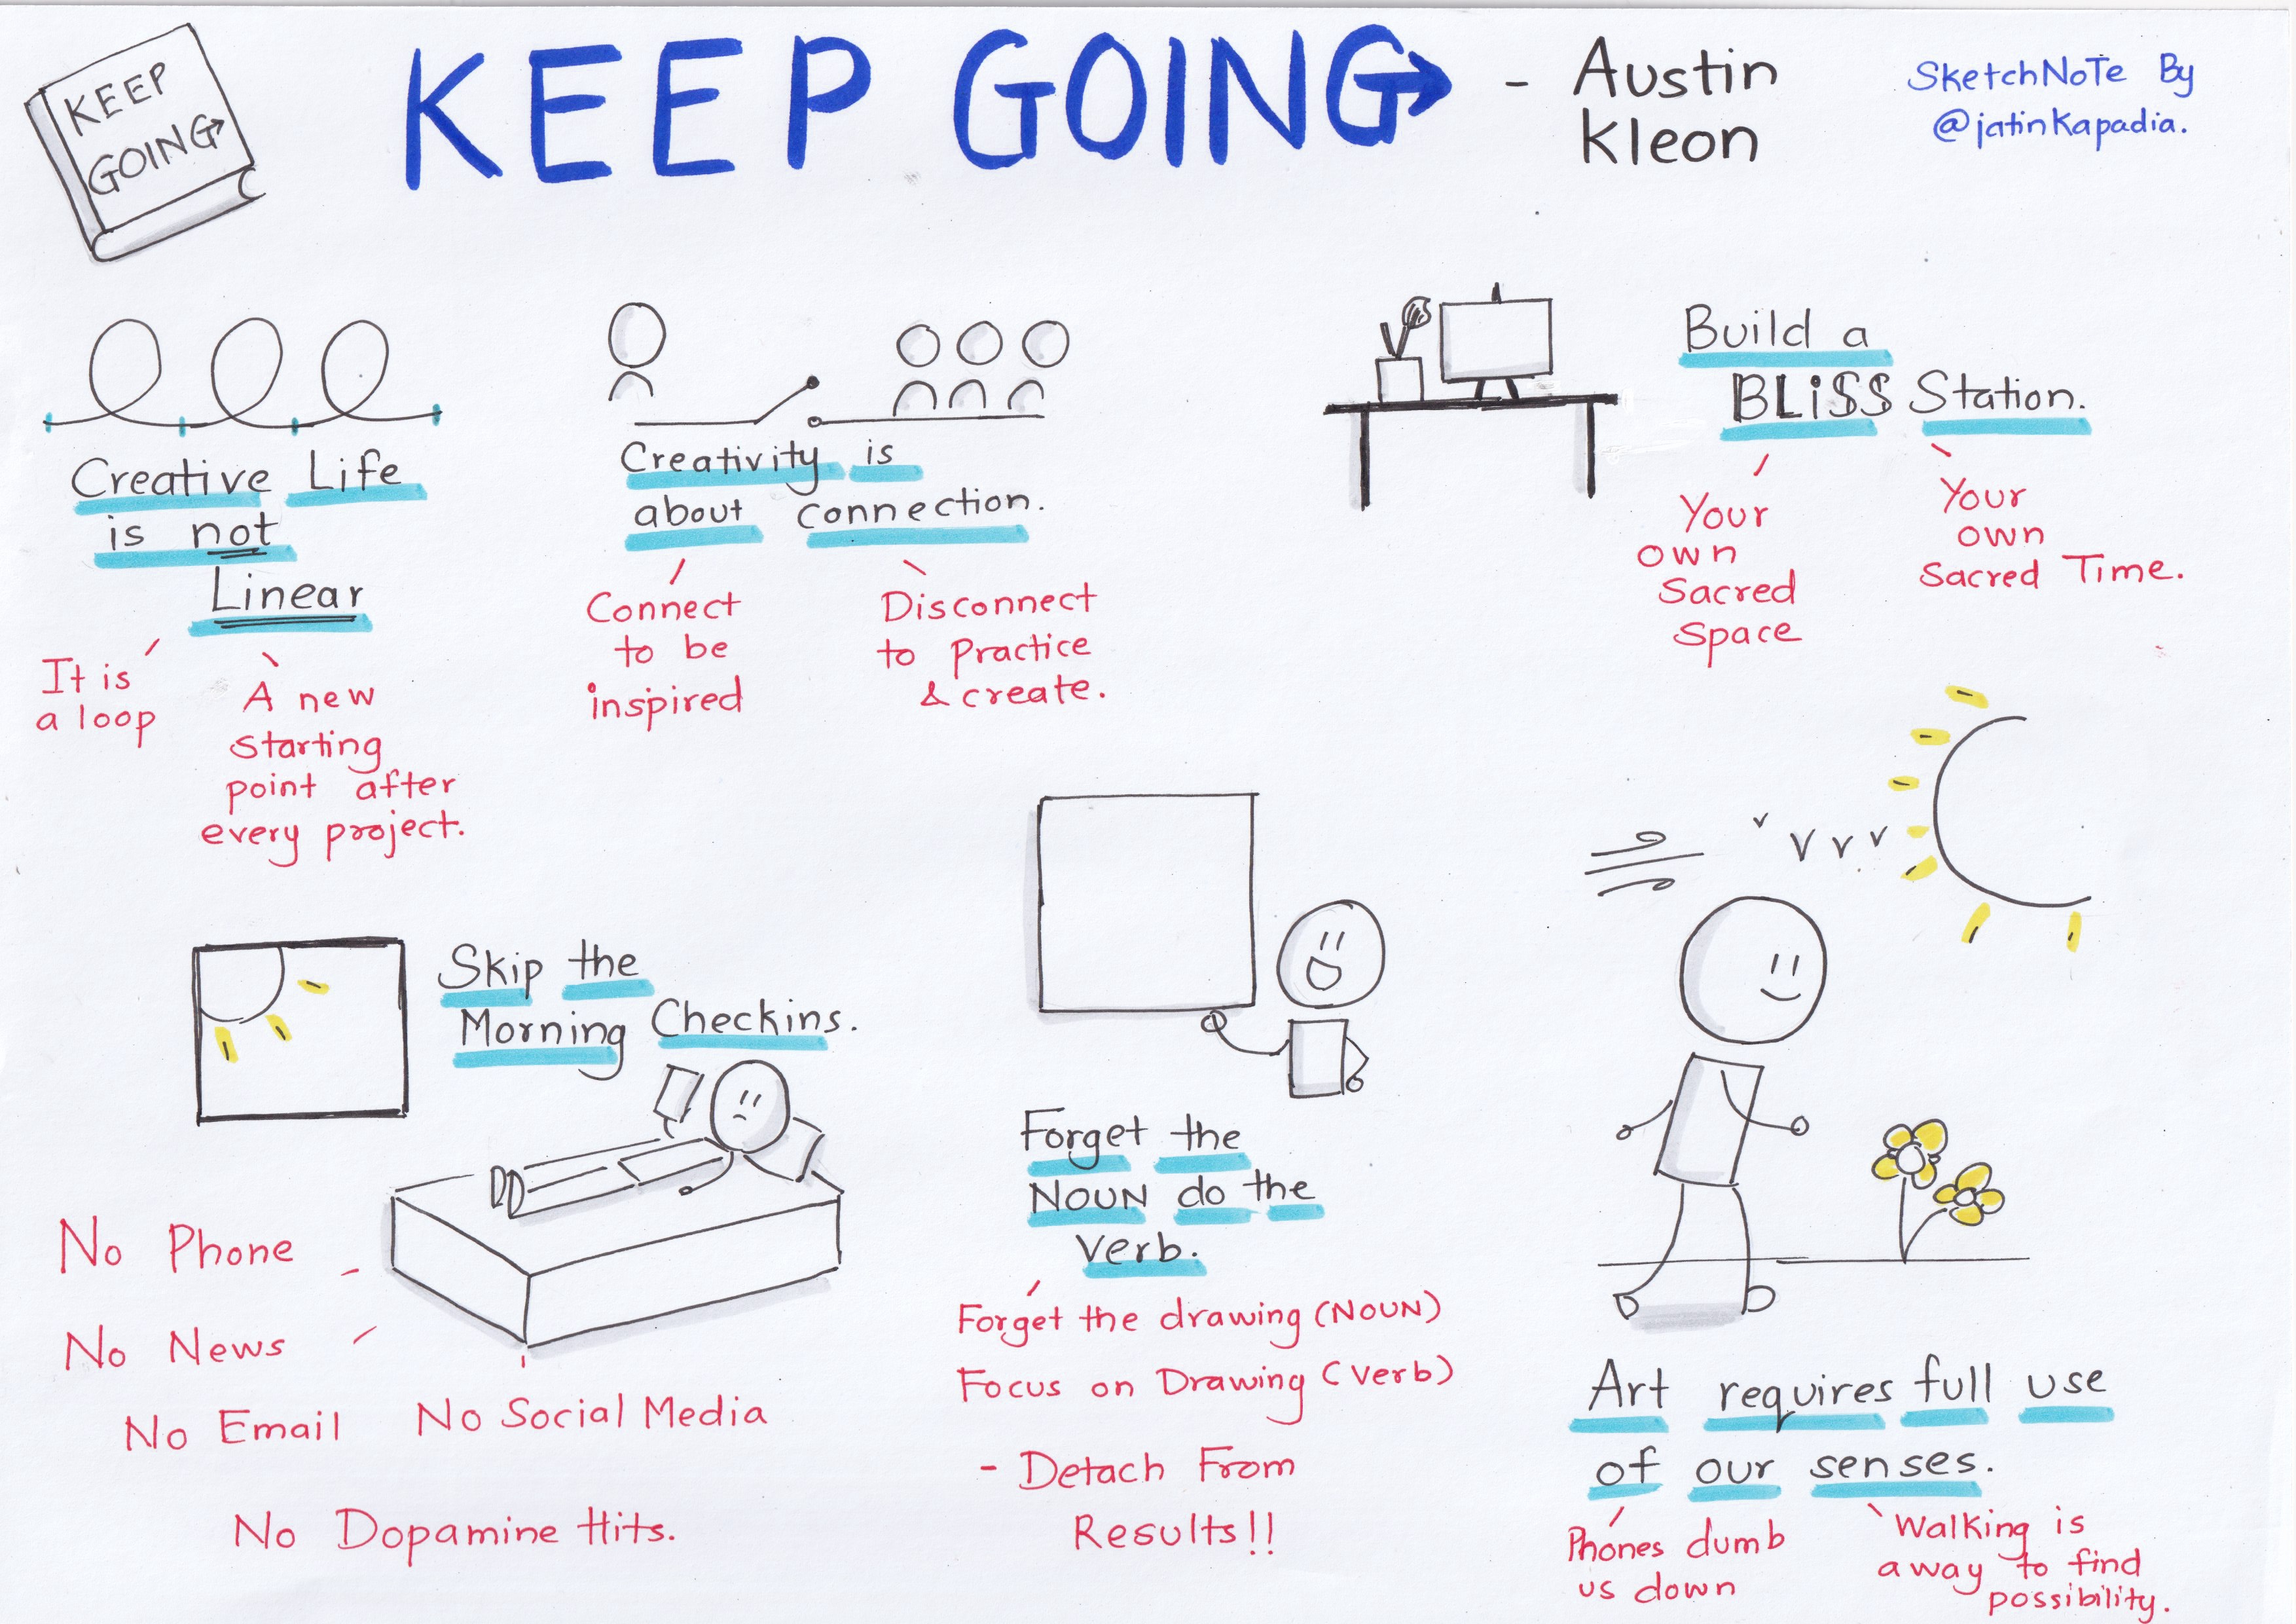 KEEP
GOING
KEEP GOING - Austin
Kleon
SketchNoTe By
@jatinKapadia.
Creative Life
is not
Linear
It is
a loop
A new
starting
point after
every project.
Creativity is
about connection.
Connect
to be
inspired
Disconnect
to Practice
& create.
Build a
BLiSS Station.
Your
own
Sacred
Space
Your
own
Sacred Time.
Skip the
Morning Checkins.
No Phone
No News
No Email
No Social Media
No Dopamine Hits.
Forget the
NOUN do the
Verb.
Forget the drawing (NOUN)
Focus on Drawing (Verb)
- Detach From
Results!!
Art requires full use
of our senses.
Phones dumb
us down
Walking is
a way to find
possibility.